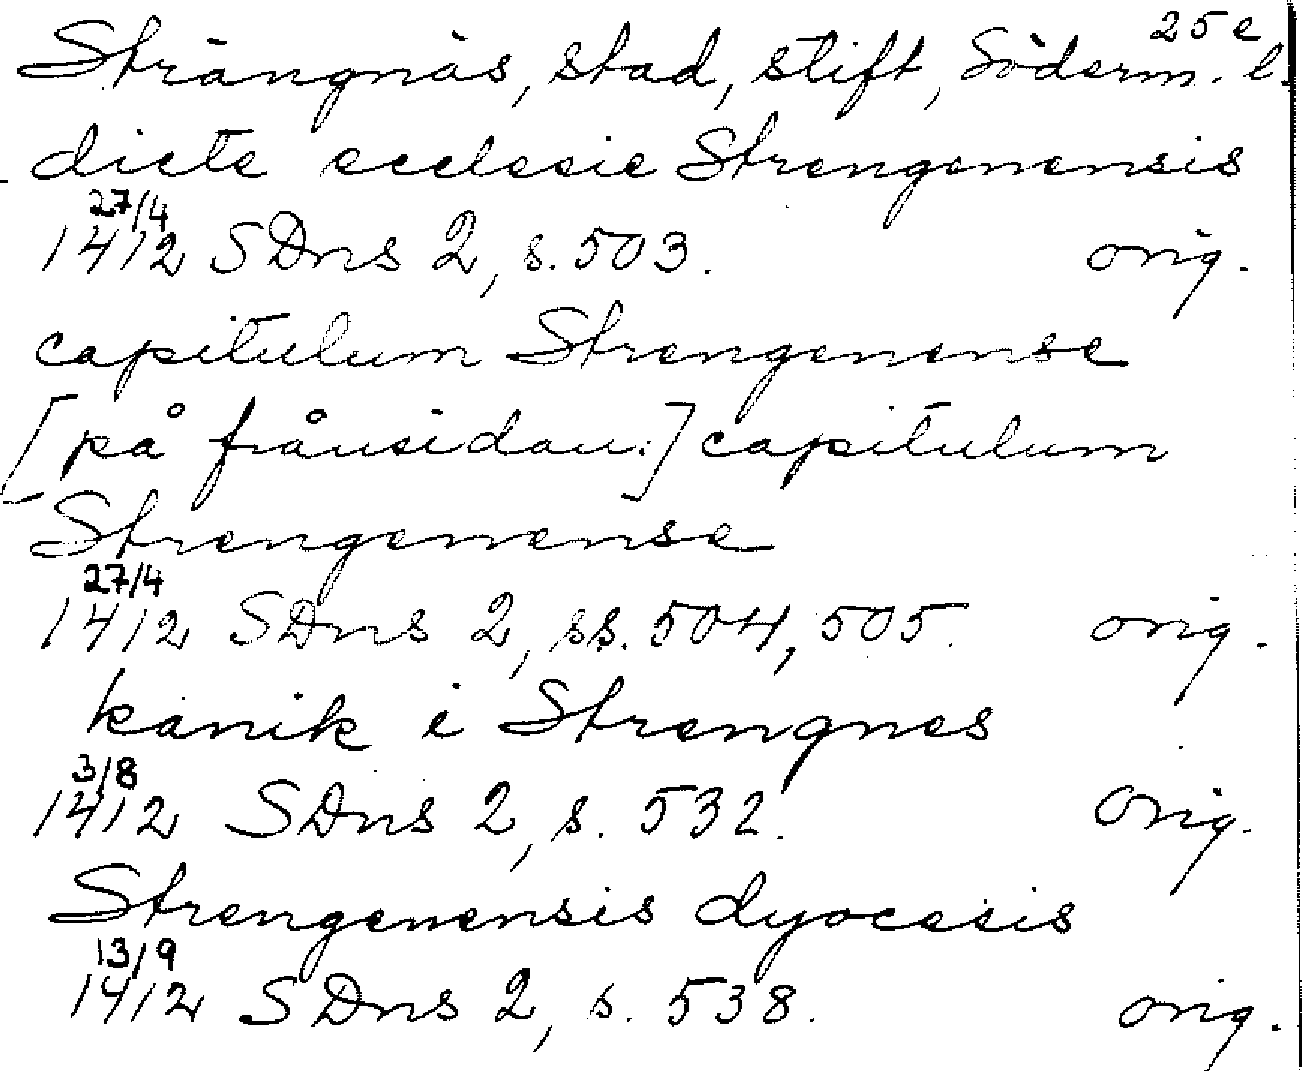 25 e
Strängnäs, stad, stift, Söderm. l.
dicte ecclesie Strengenensis
27/4
1412 SDns 2, s. 503. orig.
capitulum Strengenense
[på frånsidan:] capitulum
Strengenense
27/4
1412 SDns 2, ss. 504, 505. orig.
kanik i Strengnes
3/8
1412 SDns 2, s. 532. Orig.
Strengenensis dyocesis
13/9
1412 SDns 2, s. 538. orig.